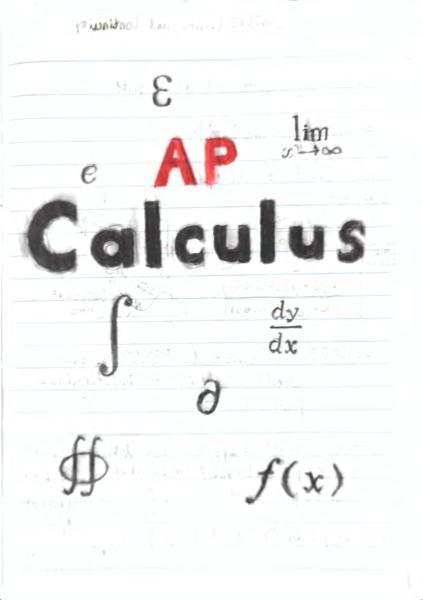 ε
lim
x→∞
AP
e
Calculus
∫
dy
dx
∂
∯
f(x)